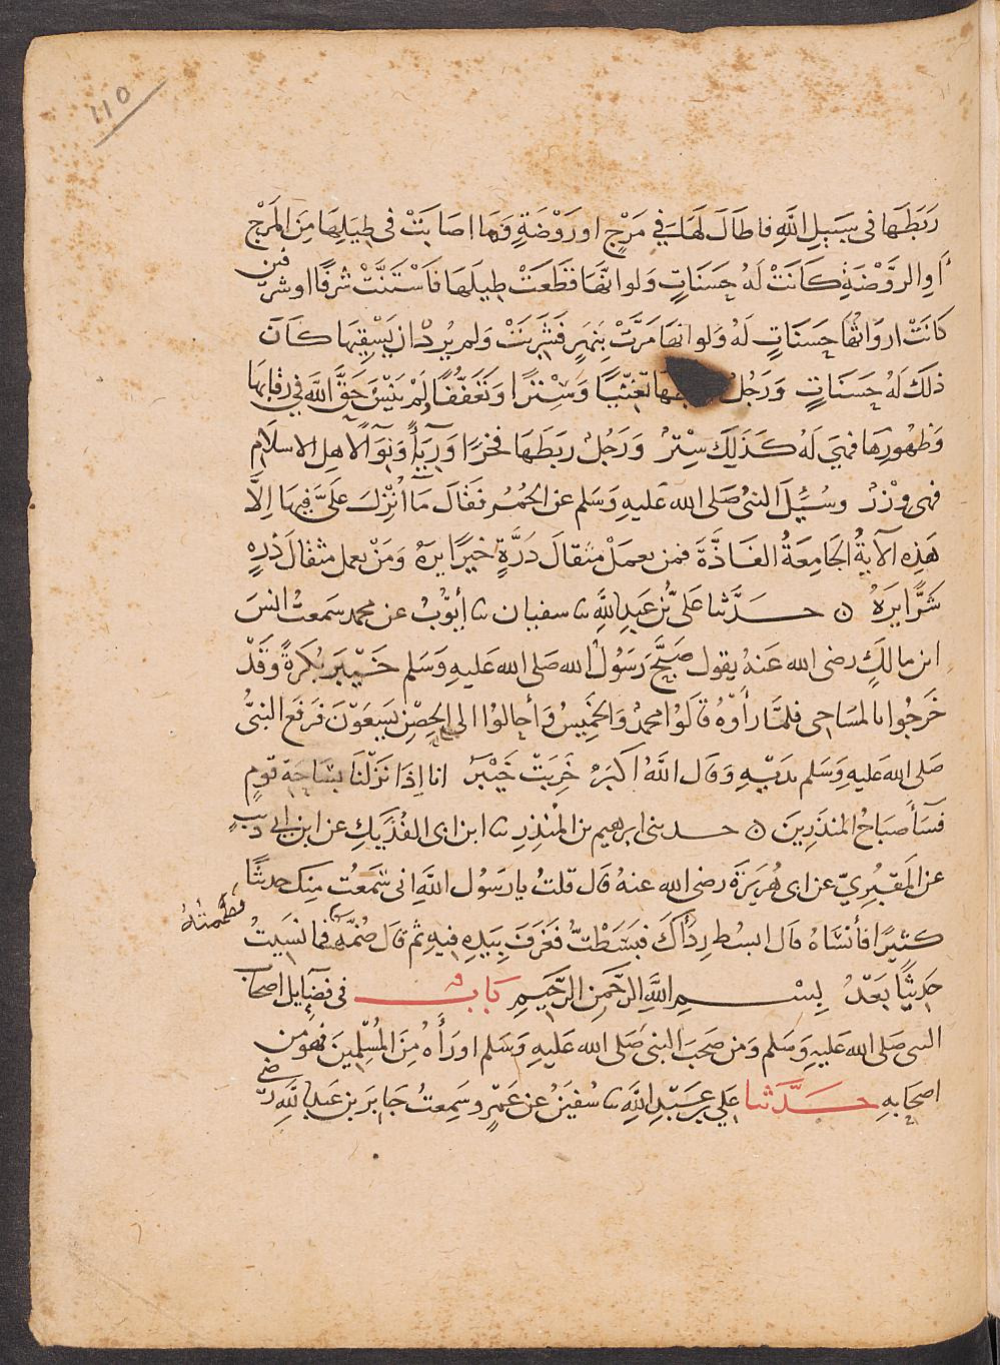 ١١٥
رَبَطَهَا فى سَبِيلِ اللَّهِ فاطَالَ لَهَا فِي مَرْجٍ اورَوْضَةٍ وَمَا اصَابَتْ فى طِيَلِهَا مِنَ المَرْجِ
أوِ الرَّوْضَةِ كَانَتْ لَهُ حَسَنَاتٍ وَلو انَّهَا قَطَعَتْ طِيلَهَا فَاسْتَنَّتْ شرفًا او شرفين
كَانَتْ اروَاثُهَا حَسَنَاتٍ لَهُ وَلو انهَا مَرَّتْ بِنَهَرٍ فَشَرِبَتْ وَلم يُرِدْ ان يَسْقِيَهَا كَانَ
ذلكَ لَهُ حَسَنَاتٍ وَرَجُلٌ تغَنِّيًا وَسِتْرًا وَتَعَفُّفًا لَمْ يَنْسَ حَقَّ اللَّهِ في رقَابِهَا
وَظُهُورِهَا فهىَ لَهُ كَذَلِكَ سِتْرٌ وَرَجُلٌ رَبَطَهَا فخرًا وَرِيَاءً وَنِوَآءً لاهلِ الاسلَام
فهى وِزْرٌ وسُئِلَ النبىُّ صَلى الله عَليهِ وَسَلم عن الحُمُر فَقَالَ مَا أُنْزِلَ عَلَىَّ فِيهَا اِلَّا
هَذِه الآيةُ الجَامِعَةُ الفَاذَّةَ فمن يعمَلْ مثقالَ ذَرَّةٍ خيرًا يرَهُ وَمَنْ يعمل مثقالَ ذرةٍ
شَرًّا يرَهُ ۞ حَدَّثنا عَلىُّ بْنُ عَبدِ اللَّهِ ثنا سفيان ثنا أيّوْبُ عن محمد سَمعتُ انسَ
ابن مالكٍ رضى الله عَنهُ يقول صَبَّحَ رَسُولُ الله صَلى الله عَليهِ وَسَلم خَيْبَرَ بُكرَةً وَقَدْ
خَرَجُوا بالمسَاحِى فلمَّا رأَوْهُ قَالُوا محمدٌ وَالخَمِيسُ وَأحالوْا الى الحِصْنِ يَسعَوْنَ فَرَفَع النبىُّ
صَلى الله عَليهِ وَسَلم يدَيْهِ وَقال اللَّهُ اكبَرُ خَرِبَتْ خَيْبَرُ انا اِذَا نَزَلْنَا بسَاحَةِ قومٍ
فَسَآءَ صَبَاحُ المنذَرِينَ ۞ حدثنى ابرهيم بن المُنْذِرِ ثنا ابن ابى الفُدَيكِ عن ابن ابى ذئبٍ
عن المَقبُرِيِّ عن ابى هُرَيرَةَ رضى الله عنهُ قال قلتُ يا رَسُول اللَّهِ انى سَمعتُ مِنك حديثًا
كثيرًا فأنسَاهُ قال ابسُط رِدَاكَ فبَسَطْتُّ فغَرَفَ بِيَدِهِ فيهِ ثم قَال ضُمَّهُ فما نسيتُ
فضَمَمْتُهُ
حَدِيثًا بَعْدُ بِسْمِ اللَّهِ الرَّحمنِ الرَّحيمِ بابٌ فى فضَآيل اصحاب
النبى صَلى الله عَليهِ وَسَلم وَمن صَحبَ النبىَّ صَلى الله عَليهِ وَسَلم اورَأهُ مِنَ المُسْلِمِينَ فهوَ من
اصحَابهِ حَدَّثنا عَلي بن عَبْدِ اللَّهِ ثنا سُفيَنُ عن عَمْرٍو سَمِعتُ جَابِرَ بن عَبد اللَّهِ رضى